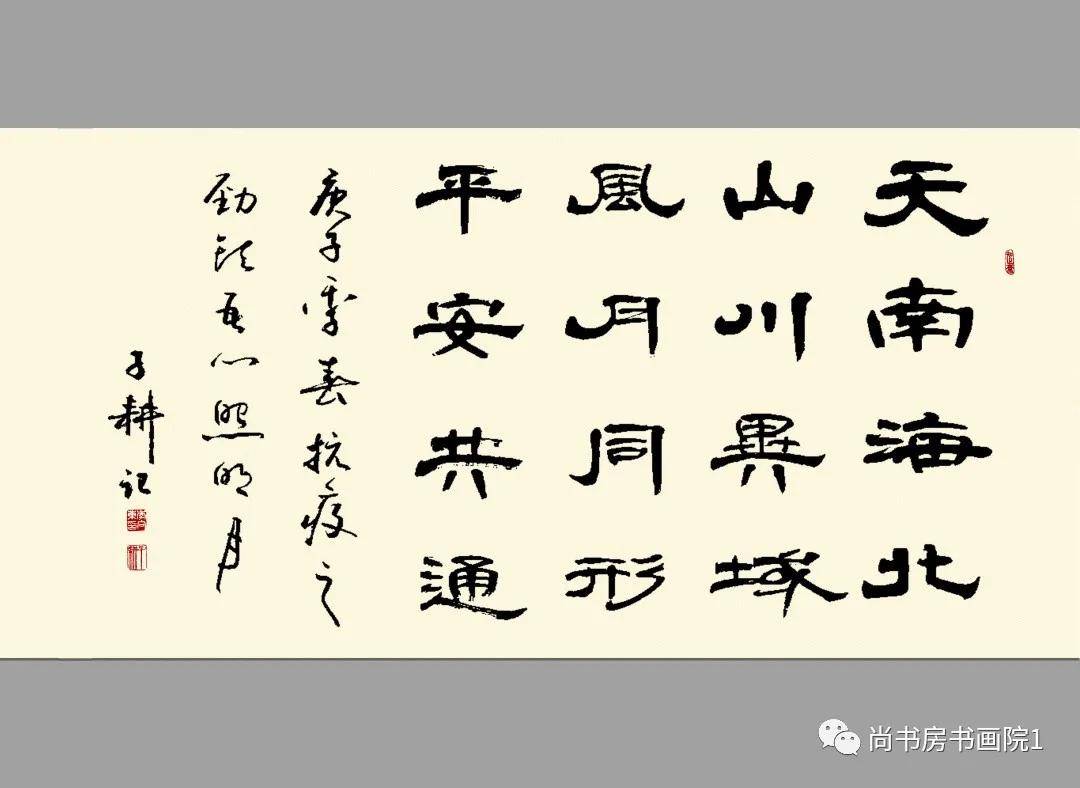 天南海北
山川異域
風月同形
平安共通
庚子季春抗疫之
勁鼓吾心照明月
子耕记
尚书房书画院1